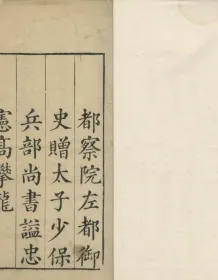 都察院左都御
史贈太子少保
兵部尚書謚忠
憲高攀龍